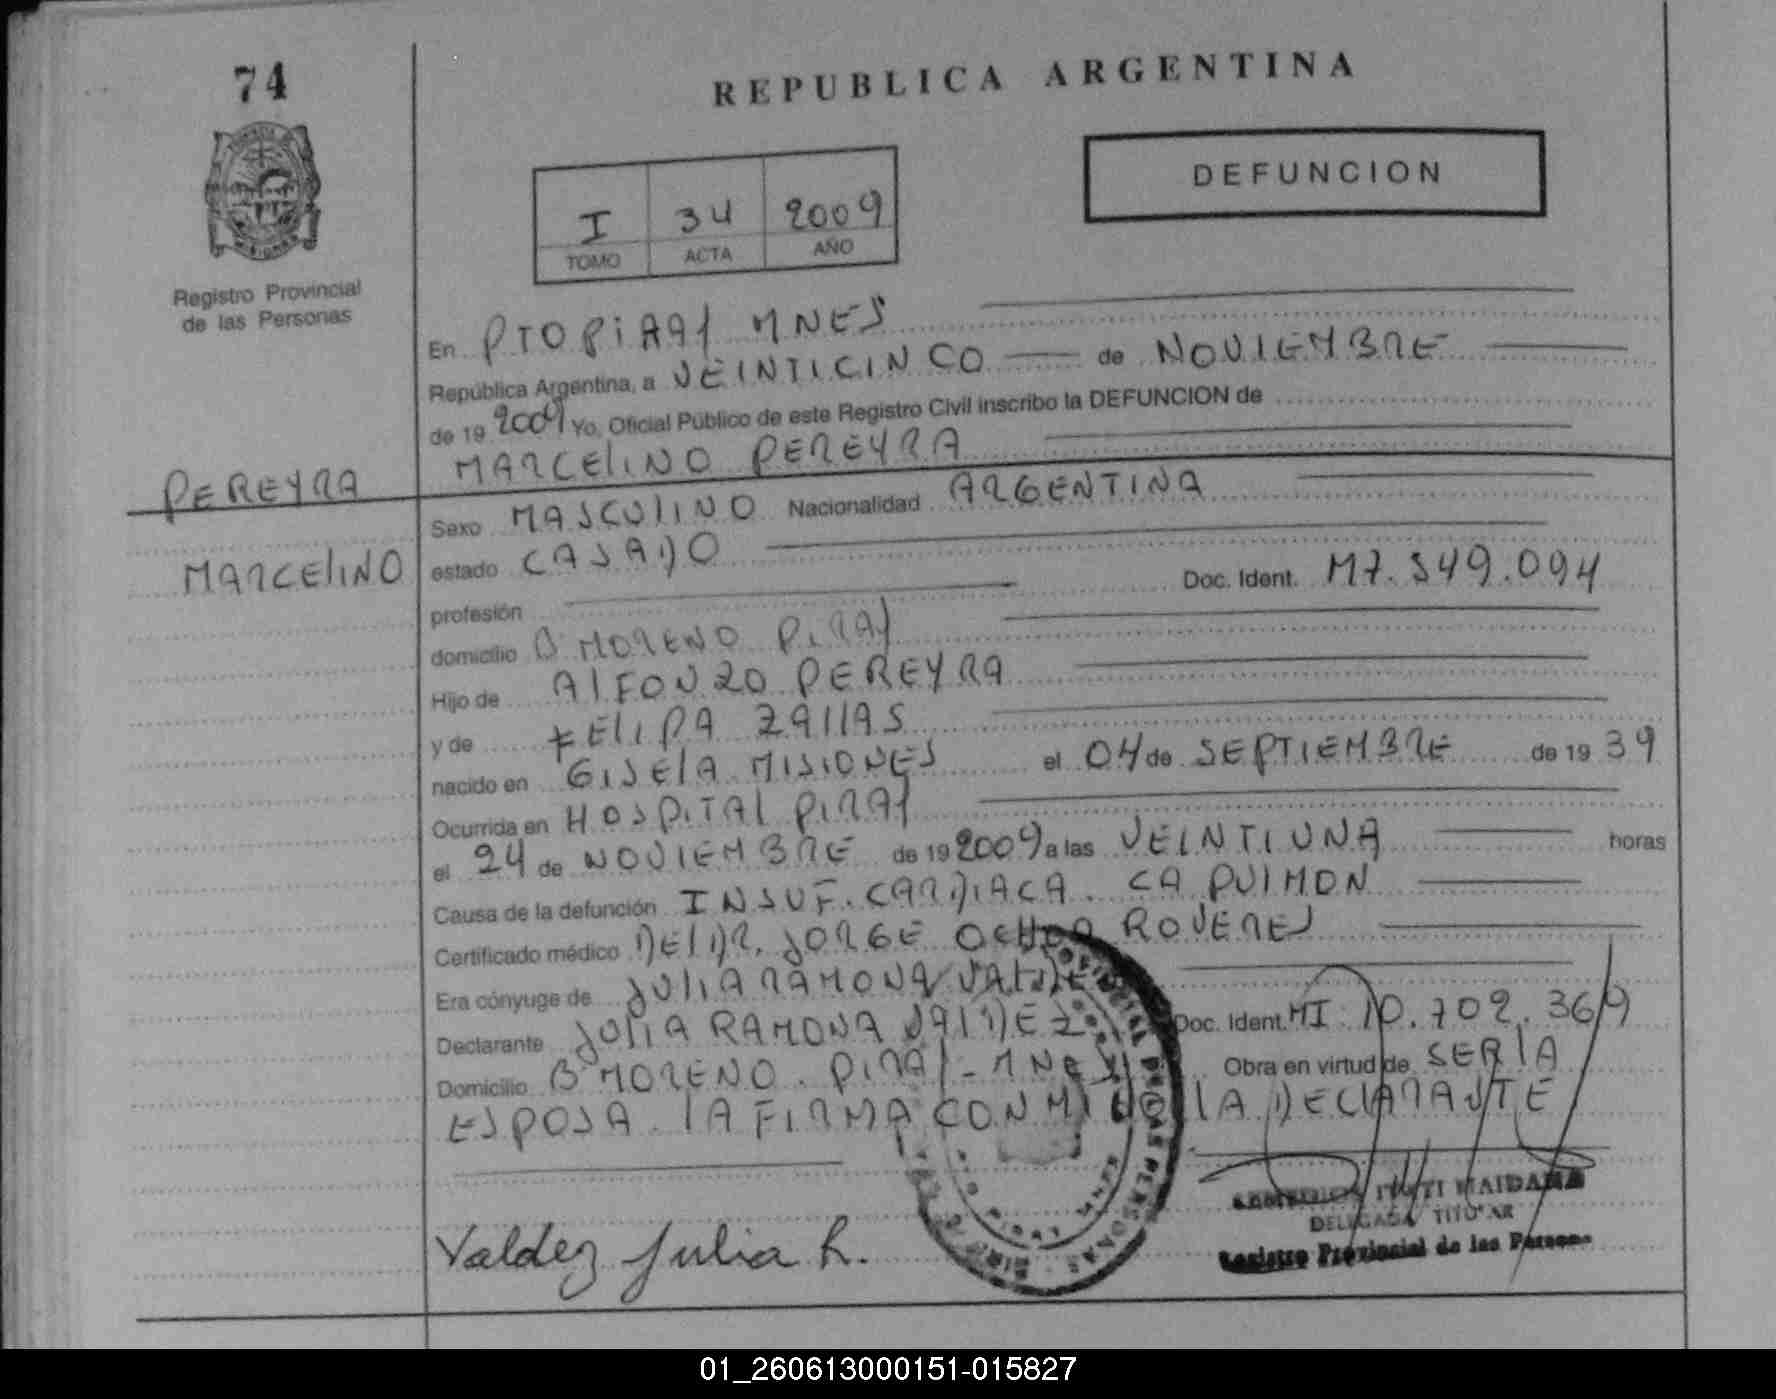 74
REPUBLICA ARGENTINA
DEFUNCION
I 34 2009
TOMO ACTA AÑO
Registro Provincial
de las Personas
En PTO PIRAY MNES
República Argentina, a VEINTICINCO de NOVIEMBRE
de 19 2009 Yo, Oficial Público de este Registro Civil inscribo la DEFUNCION de
MARCELINO PEREYRA
PEREYRA
MARCELINO
Sexo MASCULINO Nacionalidad ARGENTINA
estado CASADO
profesión Doc. Ident. M7.549.094
domicilio B MORENO PIRAY
Hijo de ALFONZO PEREYRA
y de FELIPA
nacido en GISELA MISIONES el 04 de SEPTIEMBRE de 19 39
Ocurrida en HOSPITAL PIRAY
el 24 de NOVIEMBRE de 19 2009 a las VEINTIUNA horas
Causa de la defunción INSUF. CARDIACA. CA PULMON
Certificado médico DEL DR. JORGE OCHOA
Era cónyuge de JULIA RAMONA VALDEZ
Declarante JULIA RAMONA VALDEZ Doc. Ident. MI 10.702.369
Domicilio B MORENO. PIRAY - MNES Obra en virtud de SER LA
ESPOSA. LA FIRMA CONMIGO LA DECLARANTE
Valdez Julia R.
MAIDANA
DELEGADA TITULAR
Registro Provincial de las Personas
01_260613000151-015827